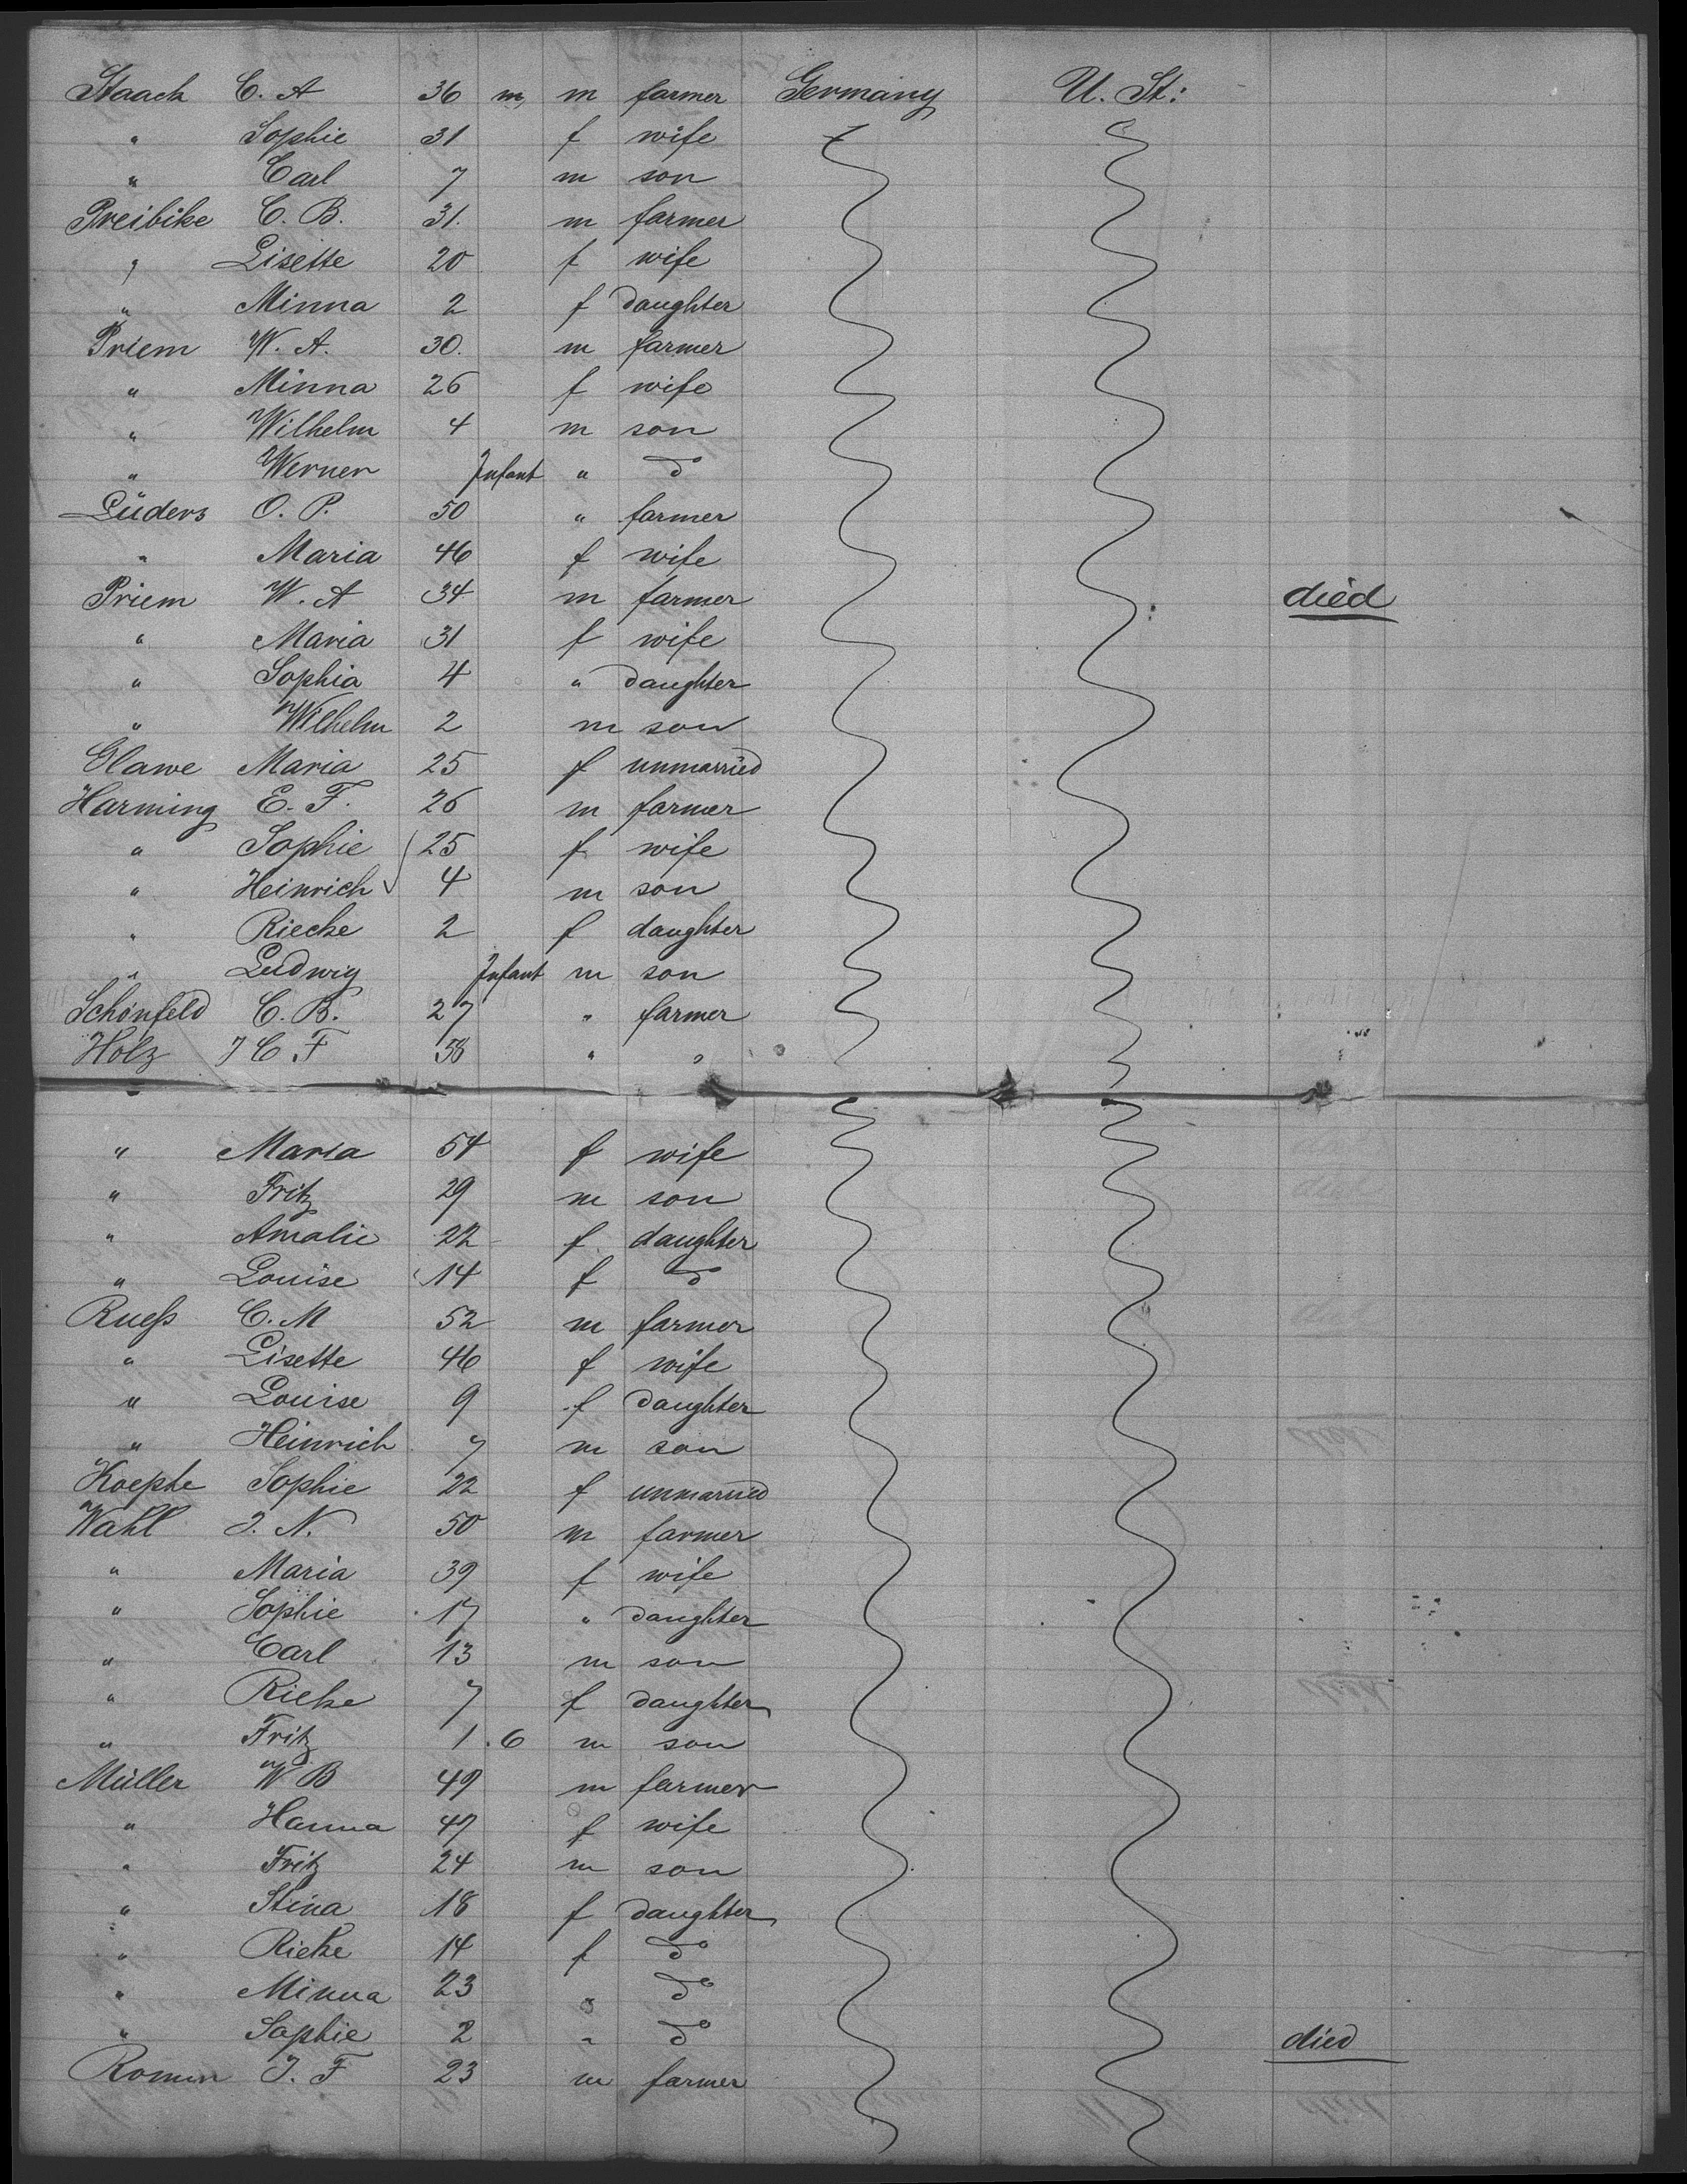 Staack C. A 36 m, m farmer Germany U. St:
" Sophie 31 f wife
" Carl 7 m son
Preibike C. B. 31. m farmer
" Lisette 20 f wife
" Minna 2 f daughter
Priem W. A. 30. m farmer
" Minna 26 f wife
" Wilhelm 4 m son
" Werner Infant " do
Lüders O. P. 50 " farmer
" Maria 46 f wife
Priem W. A 34 m farmer died
" Maria 31 f wife
" Sophia 4 " daughter
" Wilhelm 2 m son
Glawe Maria 25 f unmarried
Harming E. F. 26 m farmer
" Sophie 25 f wife
" Heinrich 4 m son
" Riecke 2 f daughter
" Ludwig Infant m son
Schönfeld C. B. 27 " farmer
Holz J C. F 58 " "
" Maria 54 f wife
" Fritz 29 m son
" Amalie 22 f daughter
" Louise 14 f do
Rueß C. M 52 m farmer
" Lisette 46 f wife
" Louise 9 f daughter
" Heinrich 7 m son
Koepke Sophie 22 f unmarried
Wahl J. N. 50 m farmer
" Maria 39 f wife
" Sophie 17 " daughter
" Carl 13 m son
" Rieke 7 f daughter
" Fritz 1.6 m son
Müller W B 49 m farmer
" Hanna 47 f wife
" Fritz 24 m son
" Stina 18 f daughter
" Rieke 14 f do
" Minna 23 " do
" Sophie 2 " do died
J. F 23 m farmer